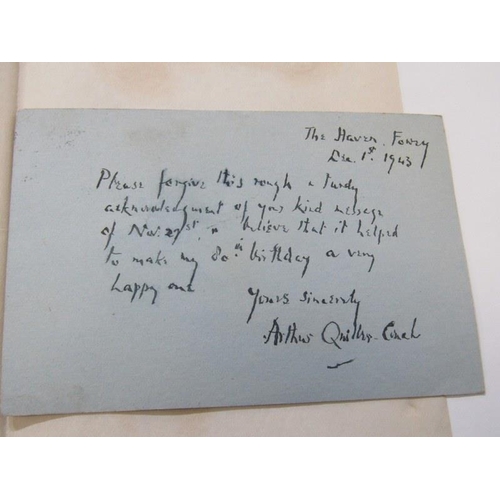 The Haven, Fowey
Dec. 1st. 1943
Please forgive this rough & tardy
acknowledgment of your kind message
of Nov. 21st, & believe that it helped
to make my 80.th birthday a very
happy one
Yours sincerely
Arthur Quiller-Couch